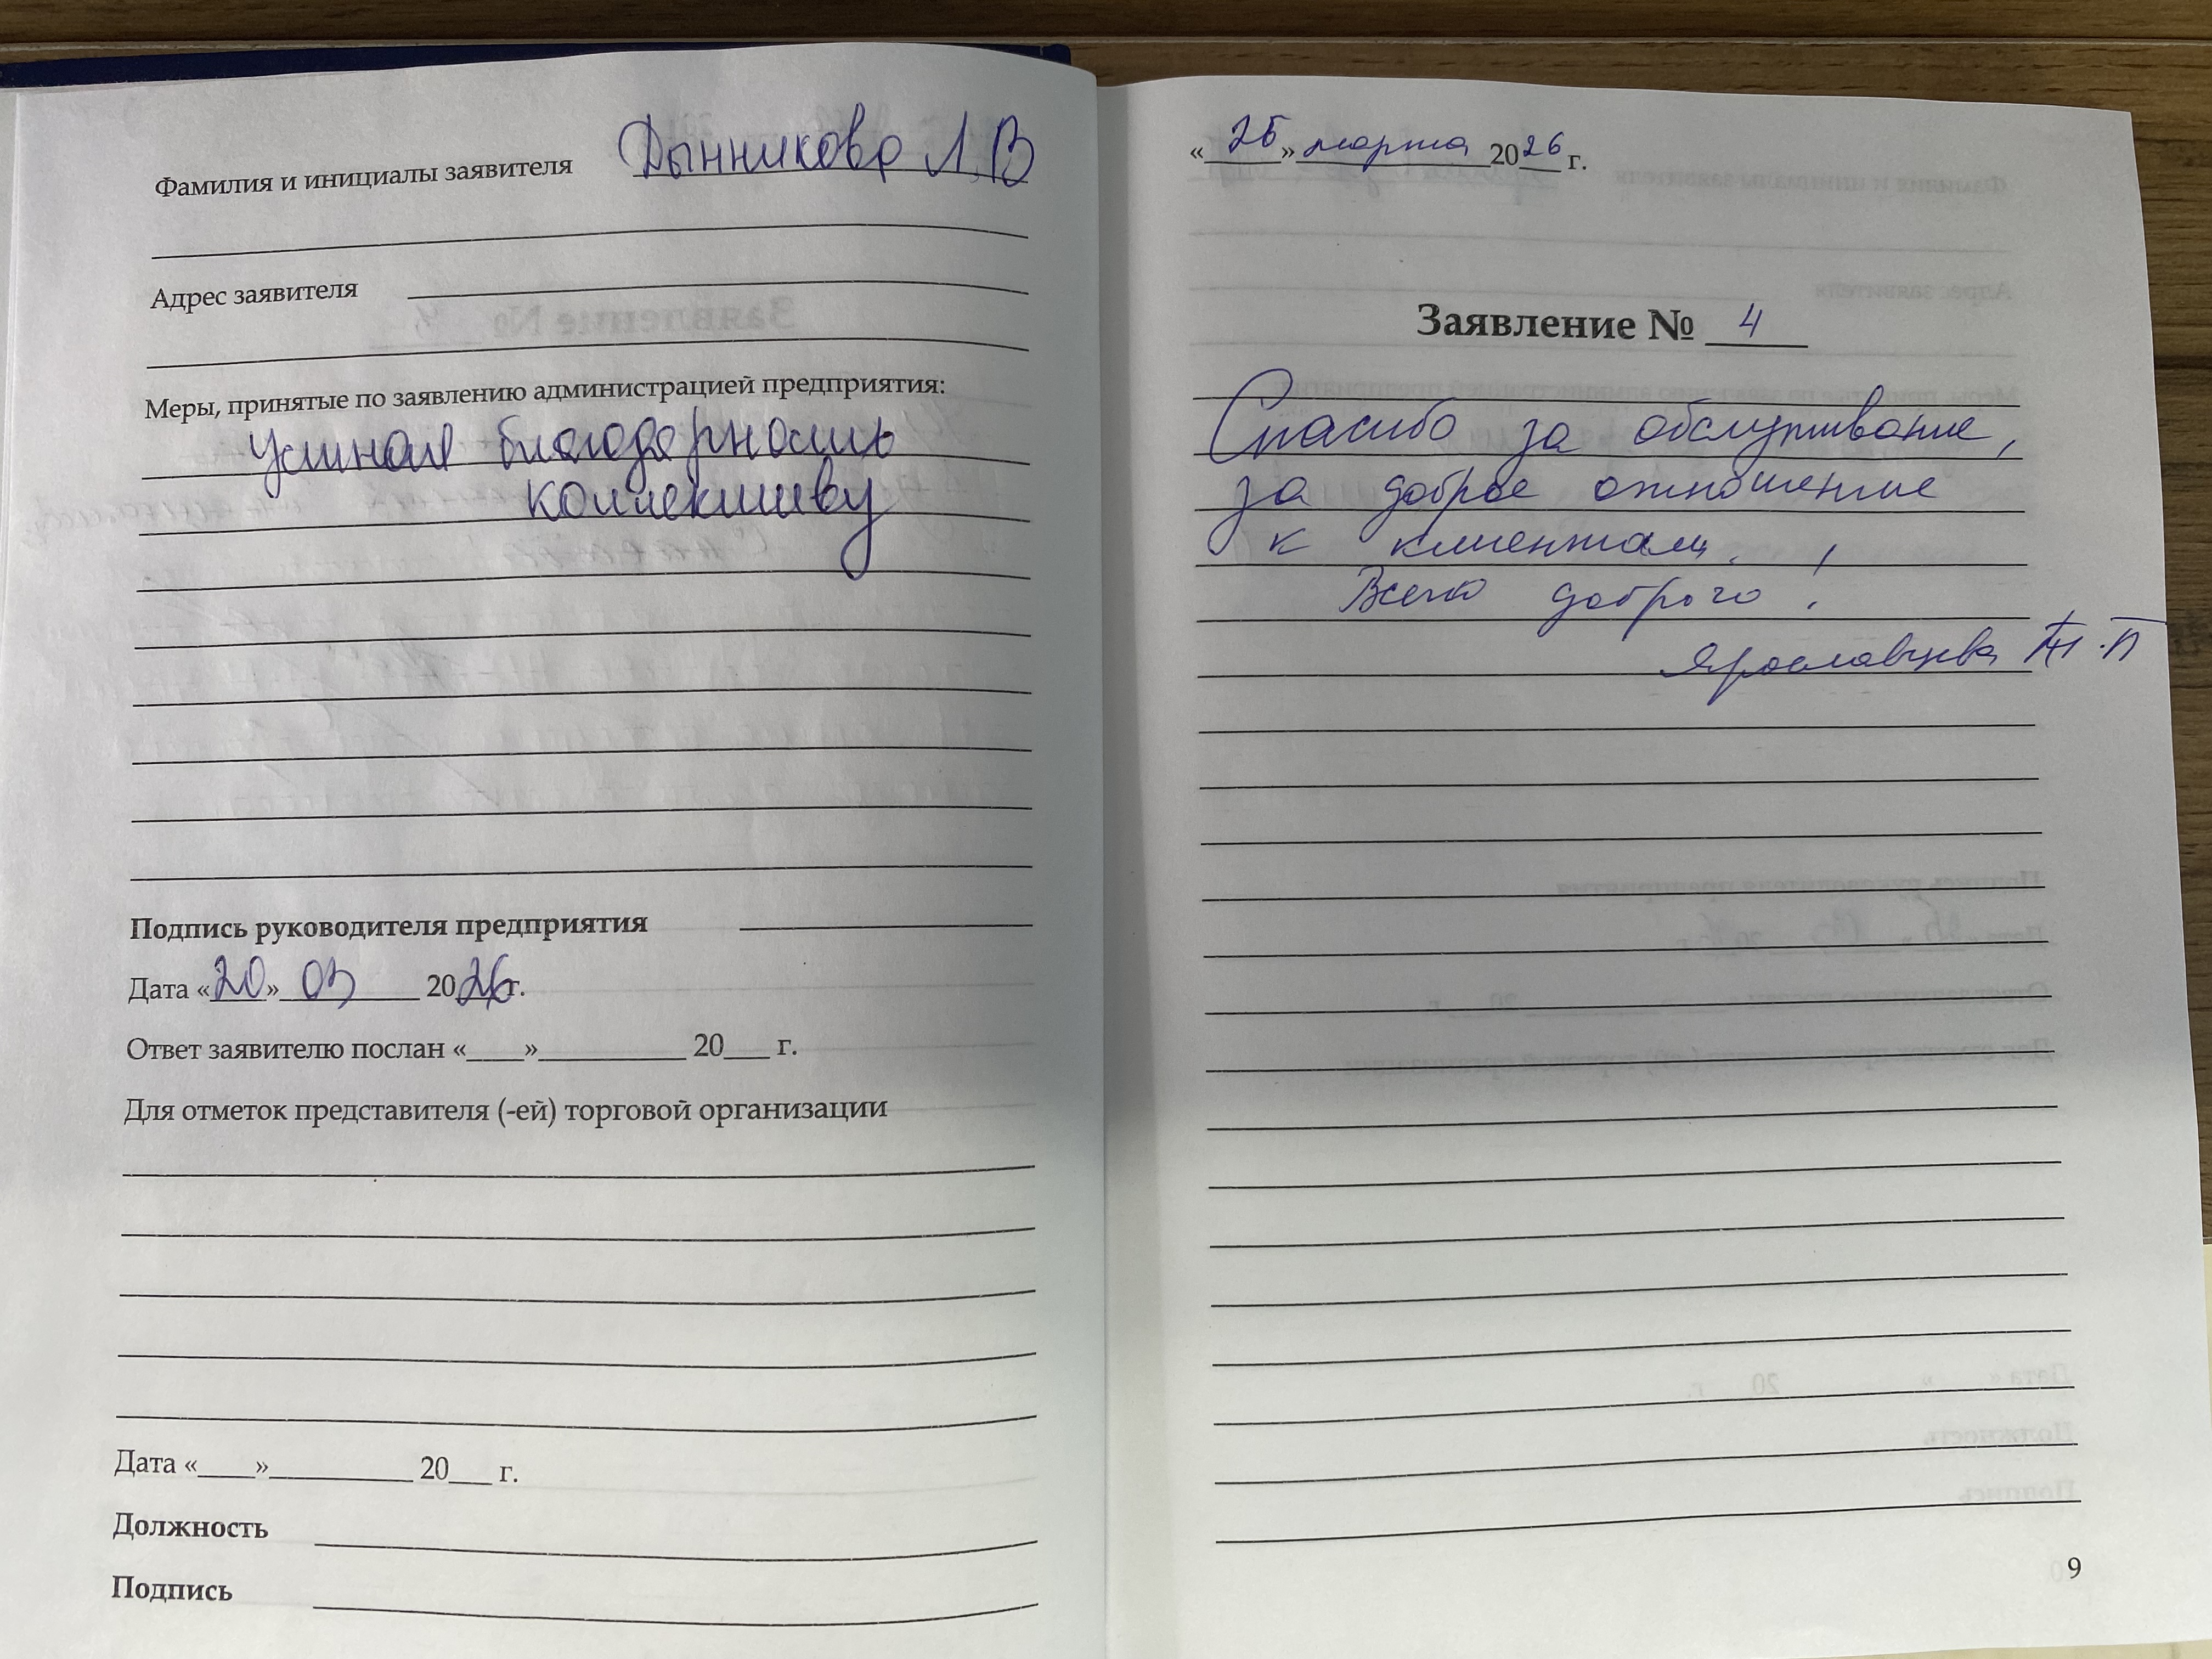 Фамилия и инициалы заявителя Дынникова Л.В
Адрес заявителя
Меры, принятые по заявлению администрацией предприятия:
Устная благодарность
коллективу
Подпись руководителя предприятия
Дата «20» 03 2026г.
Ответ заявителю послан «____»__________ 20___ г.
Для отметок представителя (-ей) торговой организации
Дата «____»__________ 20___ г.
Должность
Подпись
«25» марта 2026 г.
Заявление № 4
Спасибо за обслуживание,
за доброе отношение
к клиентам. !
Всего доброго !
Ярославцева Н.П
9